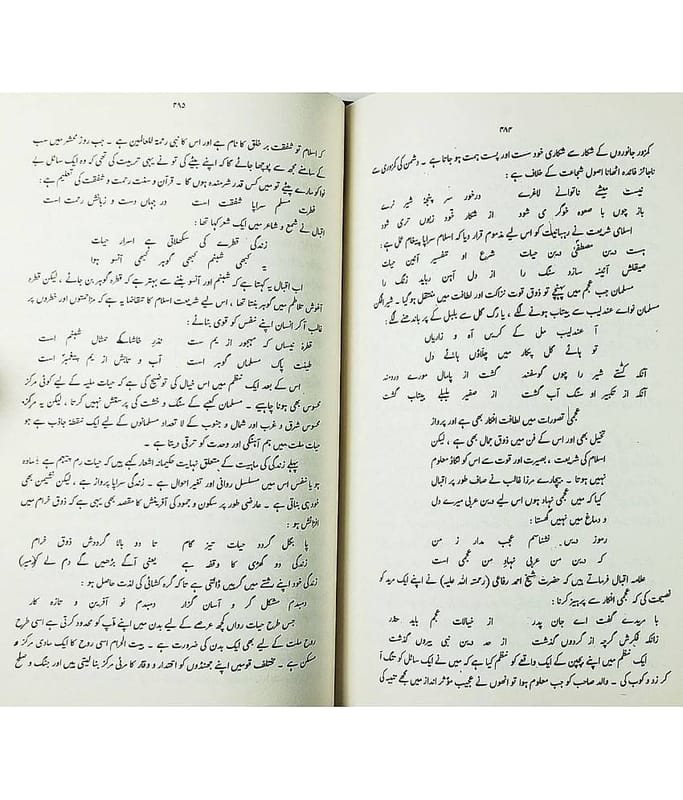 ۴۸۴
کمزور جانوروں کے شکار سے شکاری خود سست اور پست ہمت ہو جاتا ہے ۔ دشمن کی کمزوری سے
ناجائز فائدہ اٹھانا اصول شجاعت کے خلاف ہے :
نیست میشے ناتوانے لاغرے درخور سر پنجۂ شیر نرے
باز چوں با صعوہ خوگر می شود از شکار خود زبوں تری شود
اسلامی شریعت نے رہبانیت کو اسی لیے مذموم قرار دیا کہ اسلام سراپا پیغام عمل ہے :
ہست دین مصطفٰیؐ دین حیات شرع او تفسیر آئین حیات
صیقلش آئینہ سازد سنگ را از دل آہن رباید زنگ را
مسلمان جب عجم میں پہنچے تو ذوق قوت نزاکت اور لطافت میں منتقل ہو گیا ۔ شیر افگن
مسلمان نوائے عندلیب سے بیتاب ہونے لگے ، یا رگ گل سے بلبل کے پر باندھنے لگے :
آ عندلیب مل کے کریں آہ و زاریاں
تو ہائے گل پکار میں چلاؤں ہائے دل
آنکہ کشتے شیر را چوں گوسفند گشت از پامال مورے دردمند
آنکہ از تکبیر او سنگ آب گشت از صفیر بلبلے بیتاب گشت
عجمی تصورات میں لطافت افکار بھی ہے اور پرواز
تخیل بھی اور اس کے فن میں ذوق جمال بھی ہے ، لیکن
اسلام کی شریعت ، بصیرت اور قوت سے اس کو لگاؤ معلوم
نہیں ہوتا ۔ بیچارے مرزا غالب نے صاف طور پر اقبال
کیا کہ میں عجمی نہاد ہوں اس لیے دین عربی میرے دل
و دماغ میں نہیں گھستا :
رموز دیں نشناسم عجب مدار ز من
کہ دین من عربی نہاد من عجمی است
علامہ اقبال فرماتے ہیں کہ حضرت شیخ احمد رفاعی (رحمتہ اللہ علیہ) نے اپنے ایک مرید کو
نصیحت کی کہ عجمی افکار سے پرہیز کرنا :
با مریدے گفت اے جان پدر از خیالات عجم باید حذر
زانکہ فکرش گرچہ از گردوں گذشت از حد دین نبی بیروں گذشت
ایک نظم میں اپنے بچپن کے ایک واقعے کو نظم کیا ہے کہ میں نے ایک سائل کو تنگ آ
کر زد و کوب کی ۔ والد صاحب کو جب معلوم ہوا تو انھوں نے عجیب مؤثر انداز میں مجھے تنبیہ کی
۴۸۵
کہ اسلام تو شفقت بر خلق کا نام ہے اور اس کا نبی رحمۃ للعالمین ہے ۔ جب روز محشر میں سب
کے سامنے مجھ سے پوچھا جائے گا کہ اپنے بیٹے کی تو نے یہی تربیت کی تھی کہ وہ ایک سائل بے
نوا کو مارے پیٹے تو میں کس قدر شرمندہ ہوں گا ۔ قرآن و سنت رحمت و شفقت کی تعلیم ہے :
فطرت مسلم سراپا شفقت است در جہاں دست و زبانش رحمت است
اقبال نے شمع و شاعر میں ایک شعر کہا تھا :
زندگی قطرے کی سکھلاتی ہے اسرار حیات
یہ کبھی شبنم کبھی گوہر کبھی آنسو ہوا
اب اقبال یہ کہتا ہے کہ شبنم اور آنسو بننے سے بہتر ہے کہ قطرہ گوہر بن جائے ، لیکن قطرہ
آغوش تلاطم میں گوہر بنتا تھا ، اس لیے شریعت اسلام کا تقاضا ہے کہ مزاحمتوں اور خطروں پر
غالب آ کر انسان اپنے نفس کو قوی بنائے :
قطرۂ نیساں کہ مہجور از یم ست نذر خاشاکے مثال شبنم است
طینت پاک مسلماں گوہر است آب و تابش از یم پیغمبرؐ است
اس کے بعد ایک نظم میں اس خیال کی توضیح کی ہے کہ حیات ملیہ کے لیے کوئی مرکز
محسوس بھی ہونا چاہیے ۔ مسلمان کعبے کے سنگ و خشت کی پرستش نہیں کرتا ، لیکن یہ مرکز
محسوس شرق و غرب اور شمال و جنوب کے لا تعداد مسلمانوں کے لیے ایک نقطۂ جاذب ہے جو
حیات ملت میں ہم آہنگی اور وحدت کو ترقی دیتا ہے ۔
پہلے زندگی کی ماہیت کے متعلق نہایت حکیمانہ اشعار کہے ہیں کہ حیات رم پیہم ہے ۔ سادہ
جو یا نفس اس میں مسلسل روانی اور تغیر احوال ہے ۔ زندگی سراپا پرواز ہے ، لیکن نشیمن بھی
خود ہی بناتی ہے ۔ عارضی طور پر سکون و جمود کی آفرینش کا مقصد بھی یہی ہے کہ ذوق خرام میں
افزائش ہو :
پا بگل گردد حیات تیز گام تا دو بالا گرددش ذوق خرام
زندگی دو گھڑی کا وقفہ ہے یعنی آگے بڑھیں گے دم لے کر (میر)
زندگی خود اپنے رشتے میں گرہیں ڈالتی ہے تاکہ گرہ کشائی کی لذت حاصل ہو :
دمبدم مشکل گر و آساں گزار دمبدم نو آفرین و تازہ کار
جس طرح حیات رواں کچھ عرصے کے لیے بدن میں اپنے آپ کو محدود کرتی ہے اسی طرح
روح ملت کے لیے بھی ایک بدن کی ضرورت ہے ۔ بیت الحرام اسی روح کا ایک مادی مرکز و
مسکن ہے ۔ مختلف قومیں اپنے جھنڈوں کو اقتدار و وقار کا مرئی مرکز بنا لیتی ہیں اور جنگ و صلح